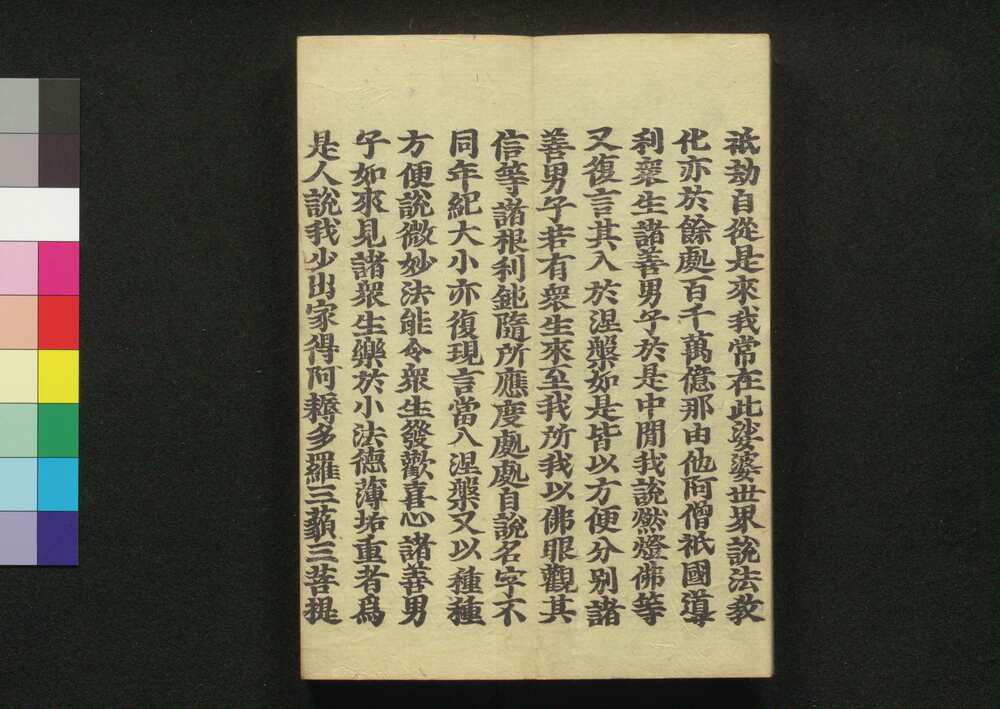 祇劫自從是來我常在此娑婆世界說法教
化亦於餘處百千萬億那由他阿僧祇國導
利衆生諸善男子於是中閒我說燃燈佛等
又復言其入於涅槃如是皆以方便分別諸
善男子若有衆生來至我所我以佛眼觀其
信等諸根利鈍隨所應度處處自說名字不
同年紀大小亦復現言當入涅槃又以種種
方便說微妙法能令衆生發歡喜心諸善男
子如來見諸衆生樂於小法德薄垢重者爲
是人說我少出家得阿耨多羅三藐三菩提